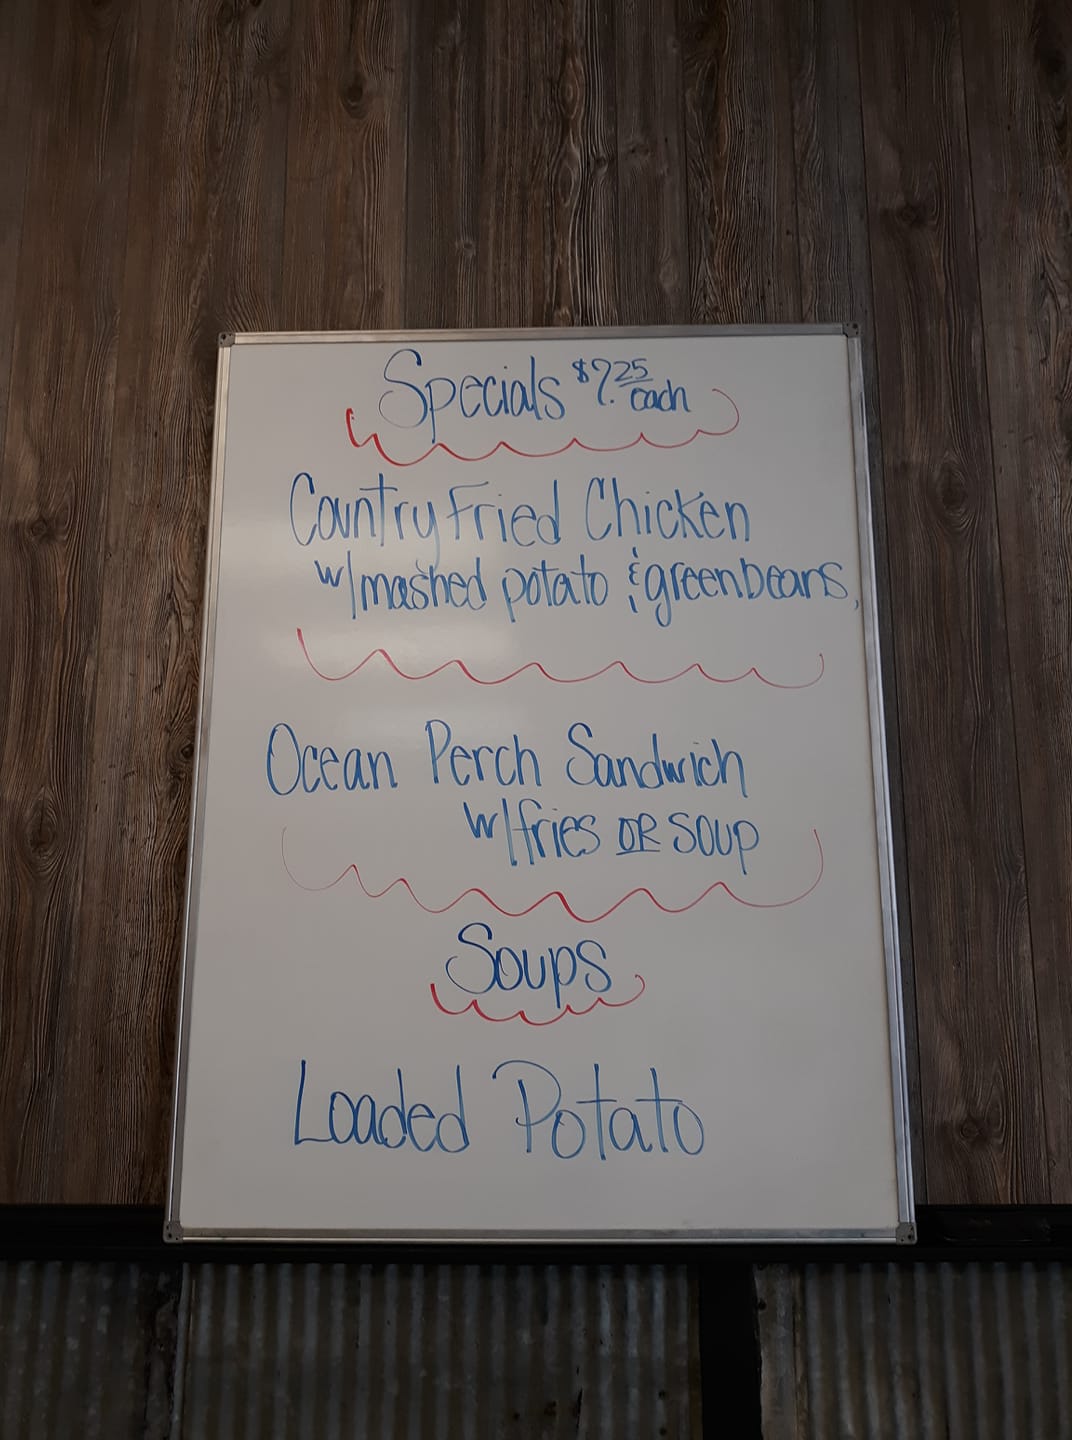 Specials $7.25 each
Country Fried Chicken
w/mashed potato & greenbeans,
Ocean Perch Sandwich
w/fries OR soup
Soups
Loaded Potato